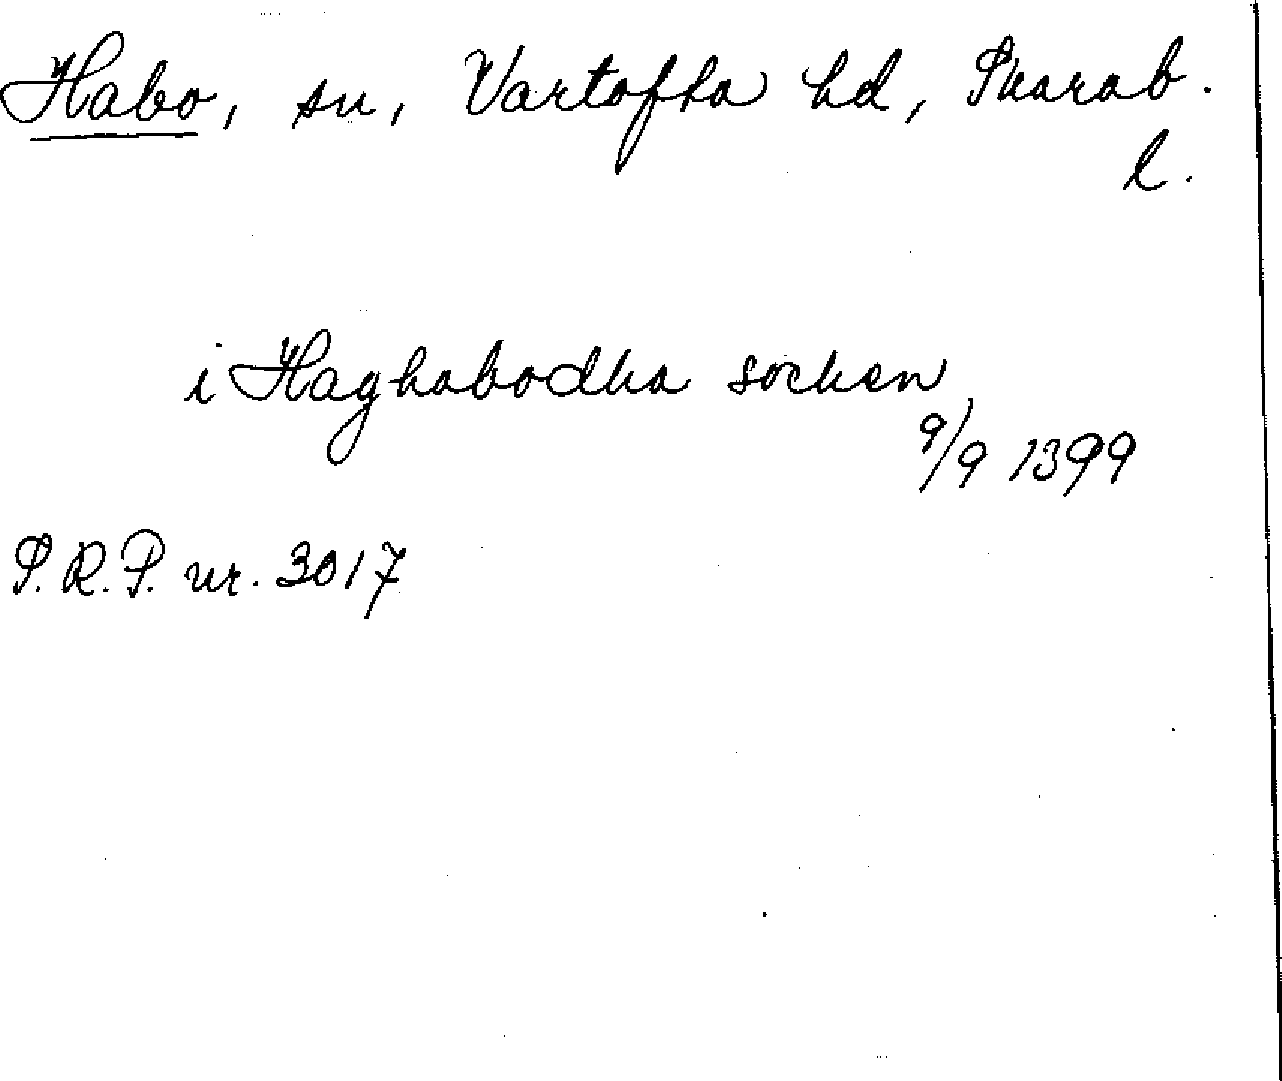 Habo, sn, Vartofta hd, Skarab.
l.
i Haghabodha sochen
9/9 1399
P.R.P. nr. 3017